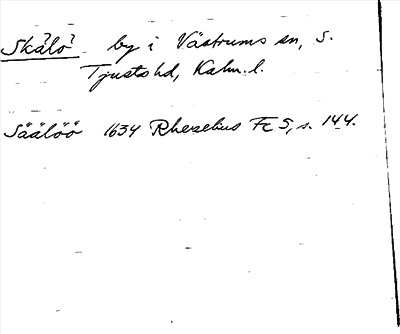 Skälö by i Västrums sn, S.
Tjusts hd, Kalm. l.
Säälöö 1634 Rhezelius Fc 5, s. 144.